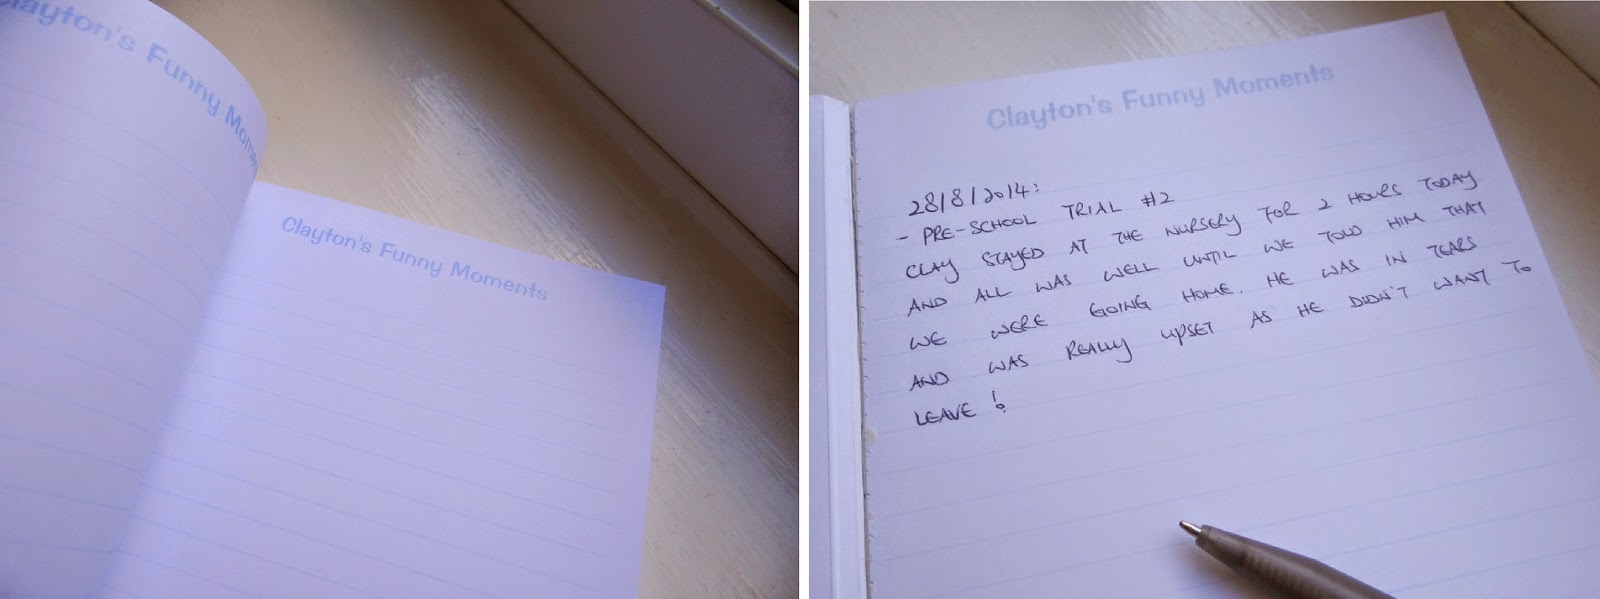 Clayton's Funny Mome
Clayton's Funny Moments
Clayton's Funny Moments
28/8/2014:
- PRE-SCHOOL TRIAL #2
CLAY STAYED AT THE NURSERY FOR 2 HOURS TODAY
AND ALL WAS WELL UNTIL WE TOLD HIM THAT
WE WERE GOING HOME. HE WAS IN TEARS
AND WAS REALLY UPSET AS HE DIDN'T WANT TO
LEAVE!